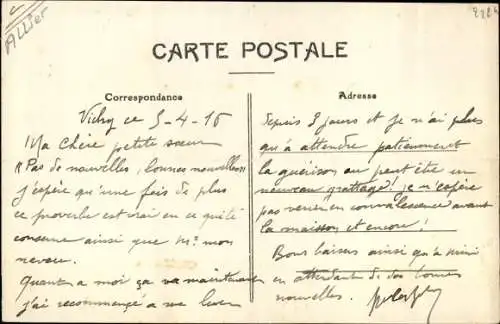 Allier
CARTE POSTALE
Correspondance
Vichy ce 5-4-16
Ma Chère petite sœur
"Pas de nouvelles, bonnes nouvelles"
j'espère qu'une fois de plus
ce proverbe est vrai en ce qui te
concerne ainsi que Mr mon
neveu.
Quant a moi ça va maintenant
j'ai recommencé a me lever
Adresse
depuis 3 jours et je n'ai plus
qu'à attendre patiemment
la guérison ou peut être un
nouveau grattage! je n'espère
pas venir en convalescence avant
la moisson et encore!
Bons baisers ainsi qu'à Mimi
en attendant de des bonnes
nouvelles.